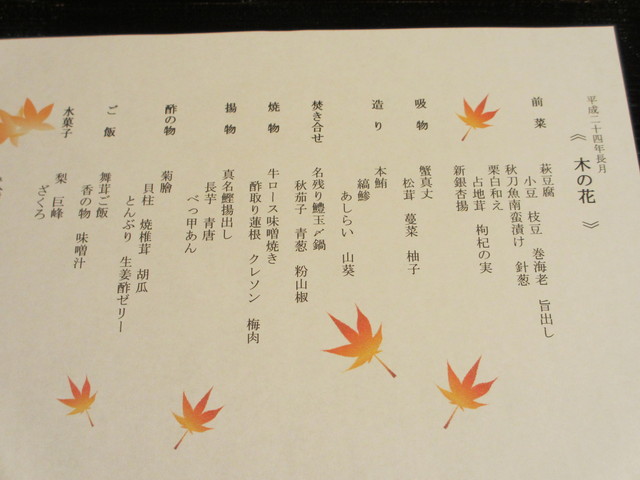 平成二十四年長月
《 木の花 》
前菜
萩豆腐
小豆 枝豆 巻海老 旨出し
秋刀魚南蛮漬け 針葱
栗白和え
占地茸 枸杞の実
新銀杏揚
吸物
蟹真丈
松茸 蔓菜 柚子
造り
本鮪
縞鯵
あしらい 山葵
焚き合せ
名残り鱧玉〆鍋
秋茄子 青葱 粉山椒
焼物
牛ロース味噌焼き
酢取り蓮根 クレソン 梅肉
揚物
真名鰹揚出し
長芋 青唐
べっ甲あん
酢の物
菊膾
貝柱 焼椎茸 胡瓜
とんぶり 生姜酢ゼリー
ご飯
舞茸ご飯
香の物 味噌汁
水菓子
梨 巨峰
ざくろ